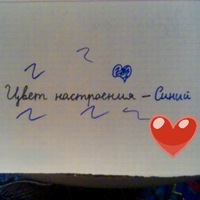 Цвет настроения – Синий